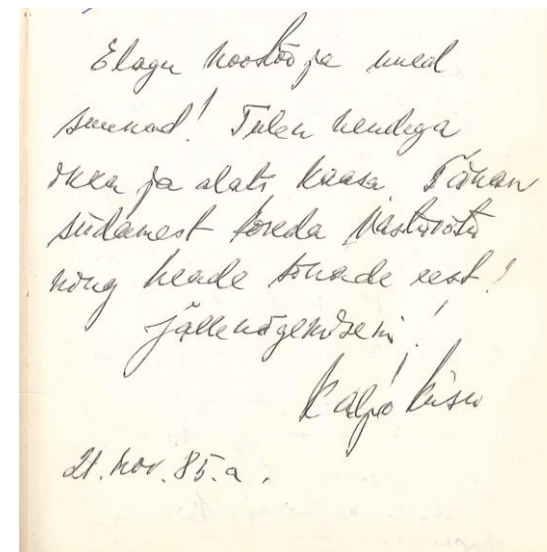 Elagu koostöö ja uued
suunad! Tulen nendega
ikka ja alati kaasa. Tänan
südamest toreda vastuvõtu
ning heade sõnade eest!
Jällenägemiseni!
Kaljo Kiisk
21. nov. 85.a.